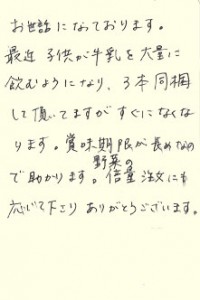 お世話になっております。
最近 子供が牛乳を大量に
飲むようになり、3本同梱
して頂いてますがすぐになくな
ります。賞味期限が長めなの
野菜の
で助かります。倍量注文にも
応じて下こり ありがとうございます。